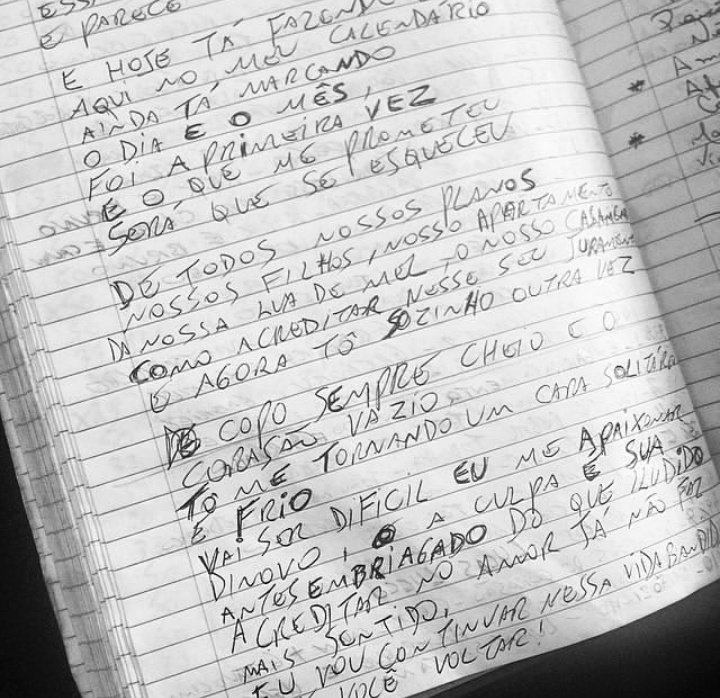 E PARECE
E HOJE TÁ FAZEND
AQUI NO MEU CALENDÁRIO
AINDA TÁ MARCANDO
O DIA E O MÊS,
FOI A PRIMEIRA VEZ
E O QUE ME PROMETEU
SERÁ QUE SE ESQUECEU
DE TODOS NOSSOS PLANOS
NOSSOS FILHOS, NOSSO APARTAMENTO
DA NOSSA LUA DE MEL, O NOSSO CASAME
COMO ACREDITAR NESSE SEU JURAMEN
E AGORA TÔ SOZINHO OUTRA VEZ
DE COPO SEMPRE CHEIO E O
CORAÇÃO VAZIO
TÔ ME TORNANDO UM CARA SOLITÁRIO
E FRIO
VAI SER DIFICIL EU ME APAIXONAR
DINOVO, E A CULPA É SUA
ANTES EMBRIAGADO DO QUE ILUDIDO
ACREDITAR NO AMOR JÁ NÃO FAZ
MAIS SENTIDO,
EU VOU CONTINUAR NESSA VIDA BANDID
VOCÊ VOLTAR!